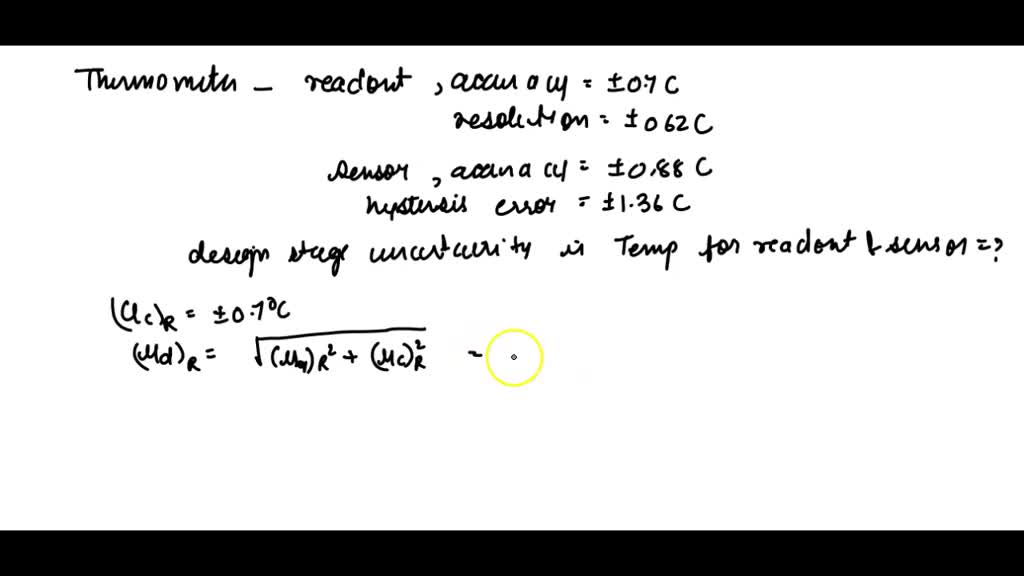 Thermometer - readout, accuracy = ±0.7 C
resolution = ±0.62 C
sensor, accuracy = ±0.88 C
hystersis error = ±1.36 C
design stage uncertainity in Temp for readout & sensor = ?
(uc)R = ±0.7°C
(ud)R = √(u₀)R² + (uc)R² =